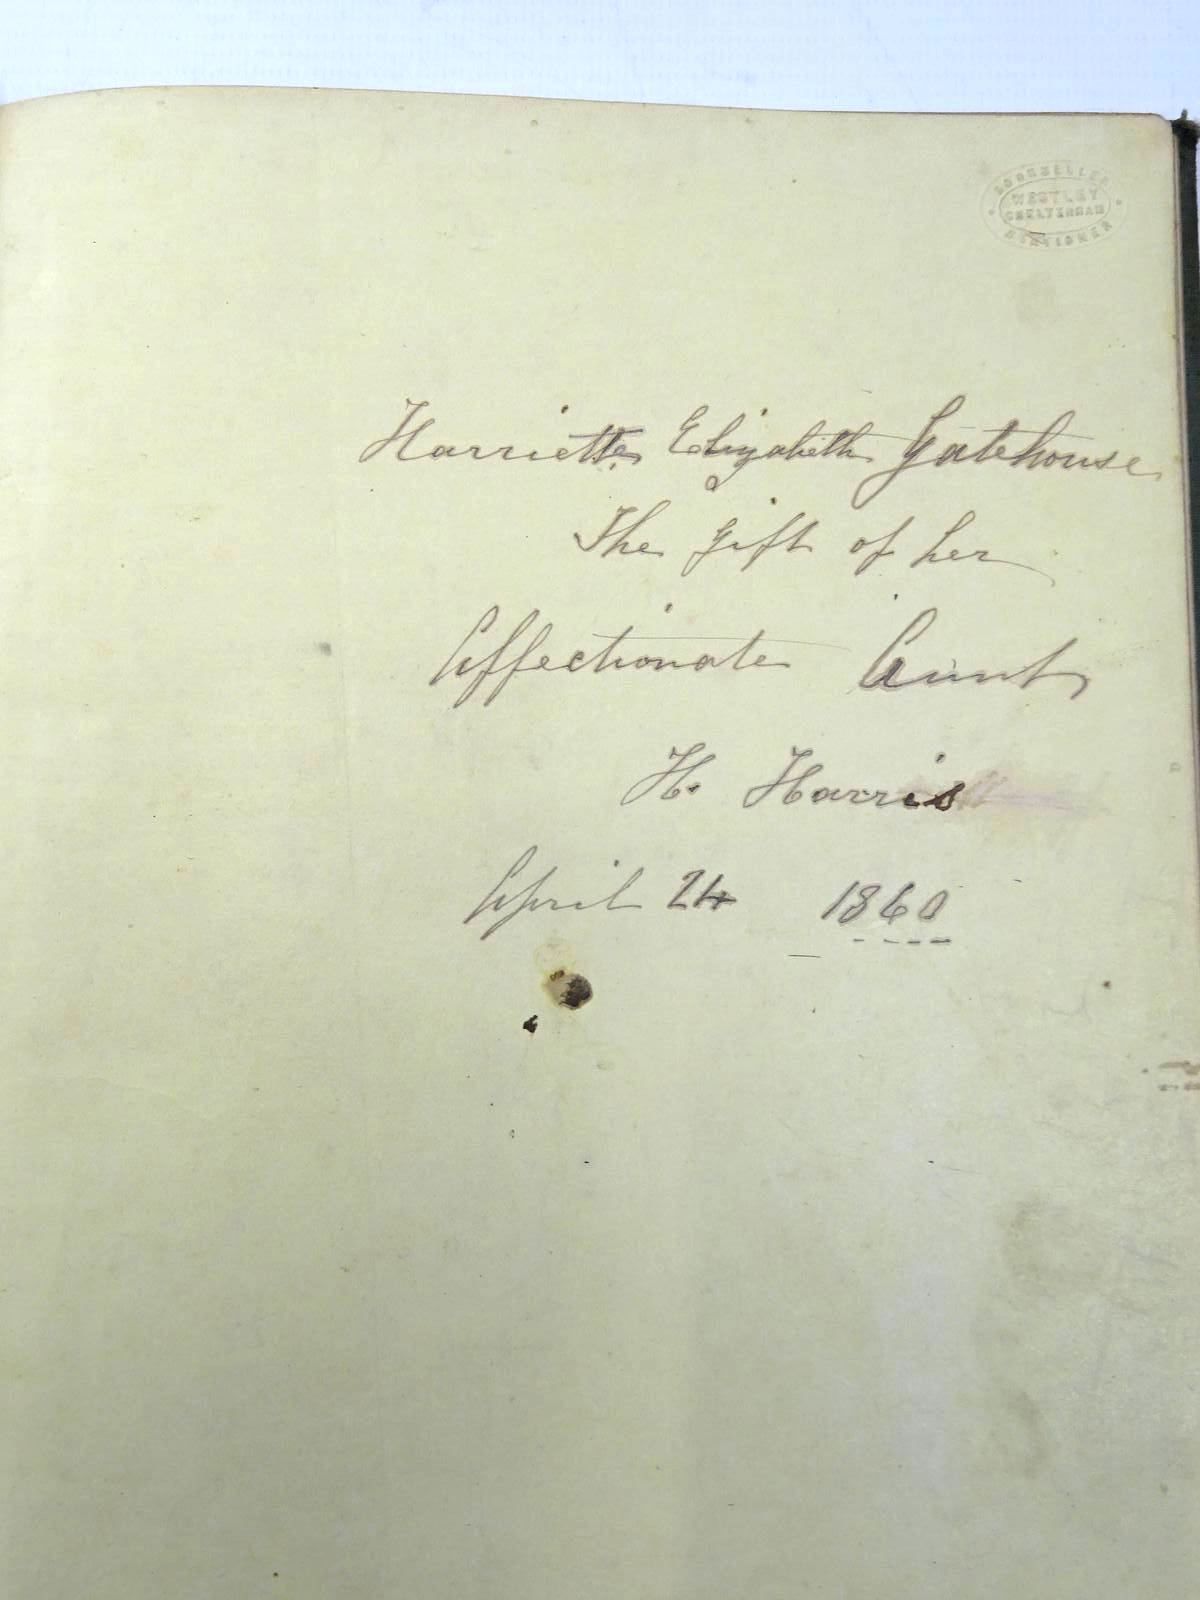 BOOKSELLER
WESTLEY
CHELTENHAM
STATIONER
Harriette Elizabeth Gatehouse
The gift of her
Affectionate Aunt
H. Harris
April 24 1860